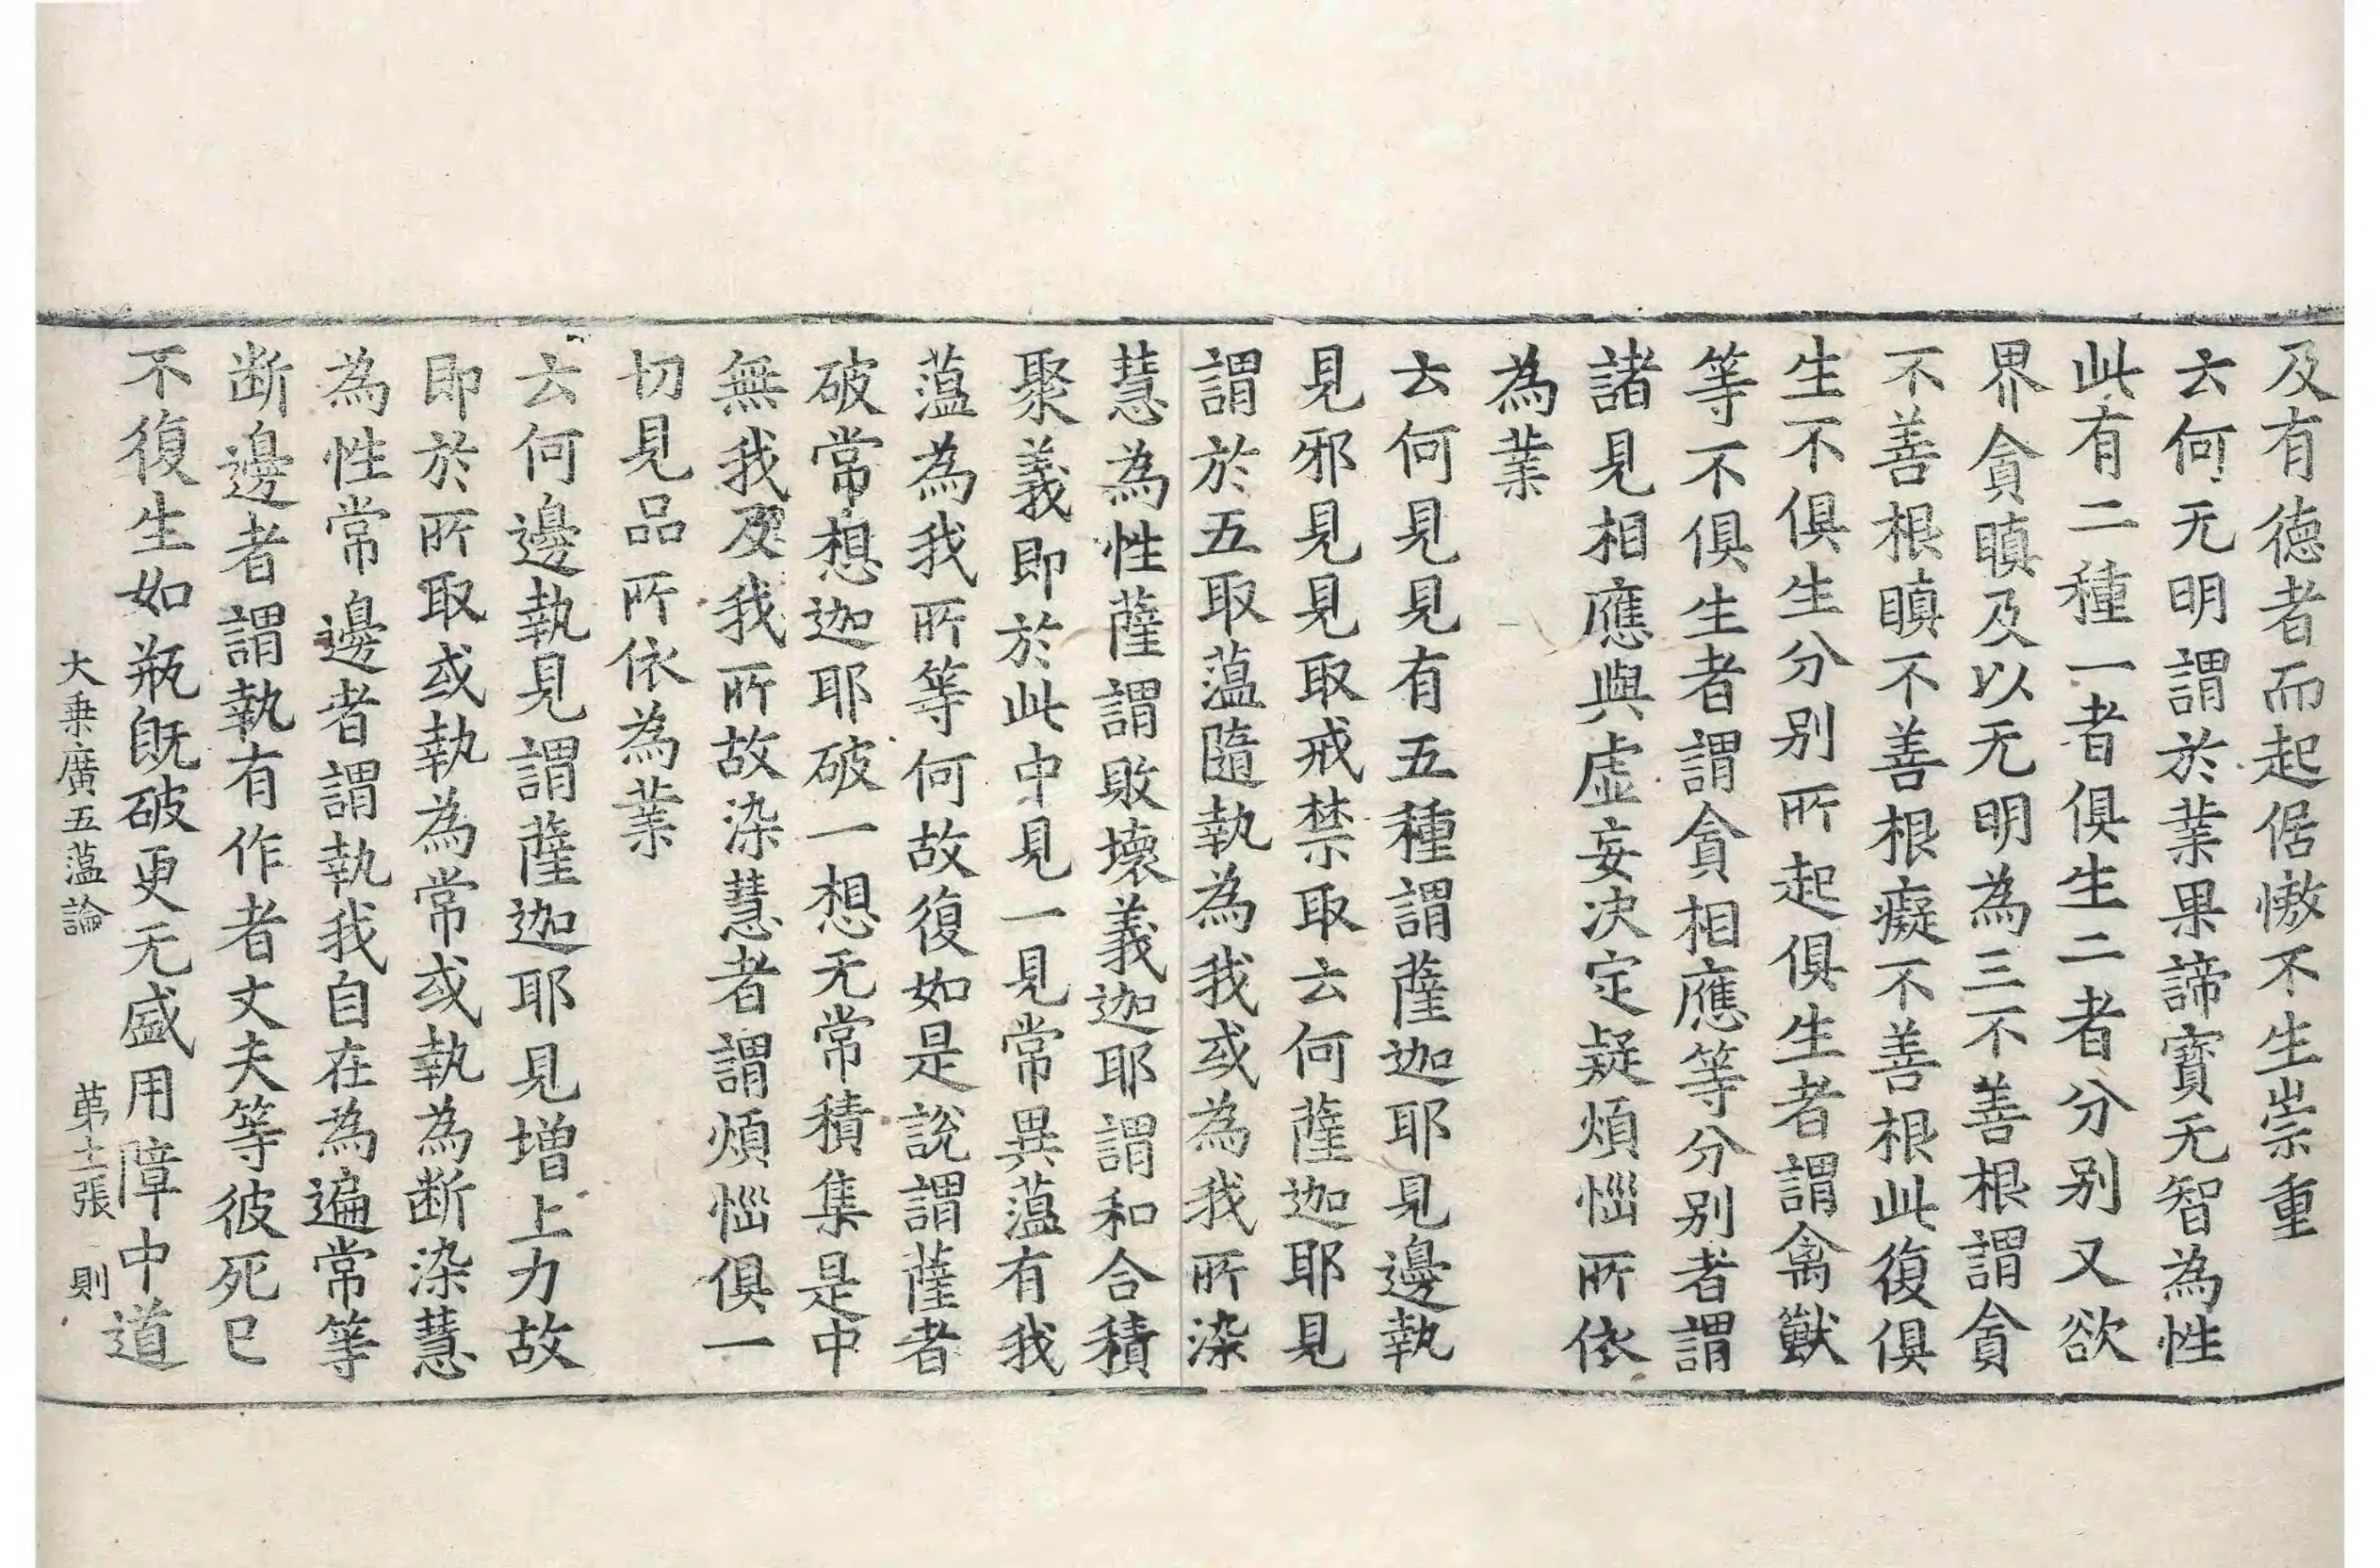 及有德者而起倨慠不生崇重
云何无明謂於業果諦寶无智為性
此有二種一者俱生二者分别又欲
界貪瞋及以无明為三不善根謂貪
不善根瞋不善根癡不善根此復俱
生不俱生分别所起俱生者謂禽獸
等不俱生者謂貪相應等分别者謂
諸見相應與虛妄决定疑煩惱所依
為業
云何見見有五種謂薩迦耶見邊執
見邪見見取戒禁取云何薩迦耶見
謂於五取蕰隨執為我或為我所染
慧為性薩謂敗壞義迦耶謂和合積
聚義即於此中見一見常異蕰有我
蕰為我所等何故復如是說謂薩者
破常想迦耶破一想无常積集是中
無我及我所故染慧者謂煩惱俱一
切見品所依為業
云何邊執見謂薩迦耶見增上力故
即於所取或執為常或執為断染慧
為性常邊者謂執我自在為遍常等
断邊者謂執有作者丈夫等彼死已
不復生如瓶既破更无盛用障中道
大乗廣五蕰論 苐十二張 則